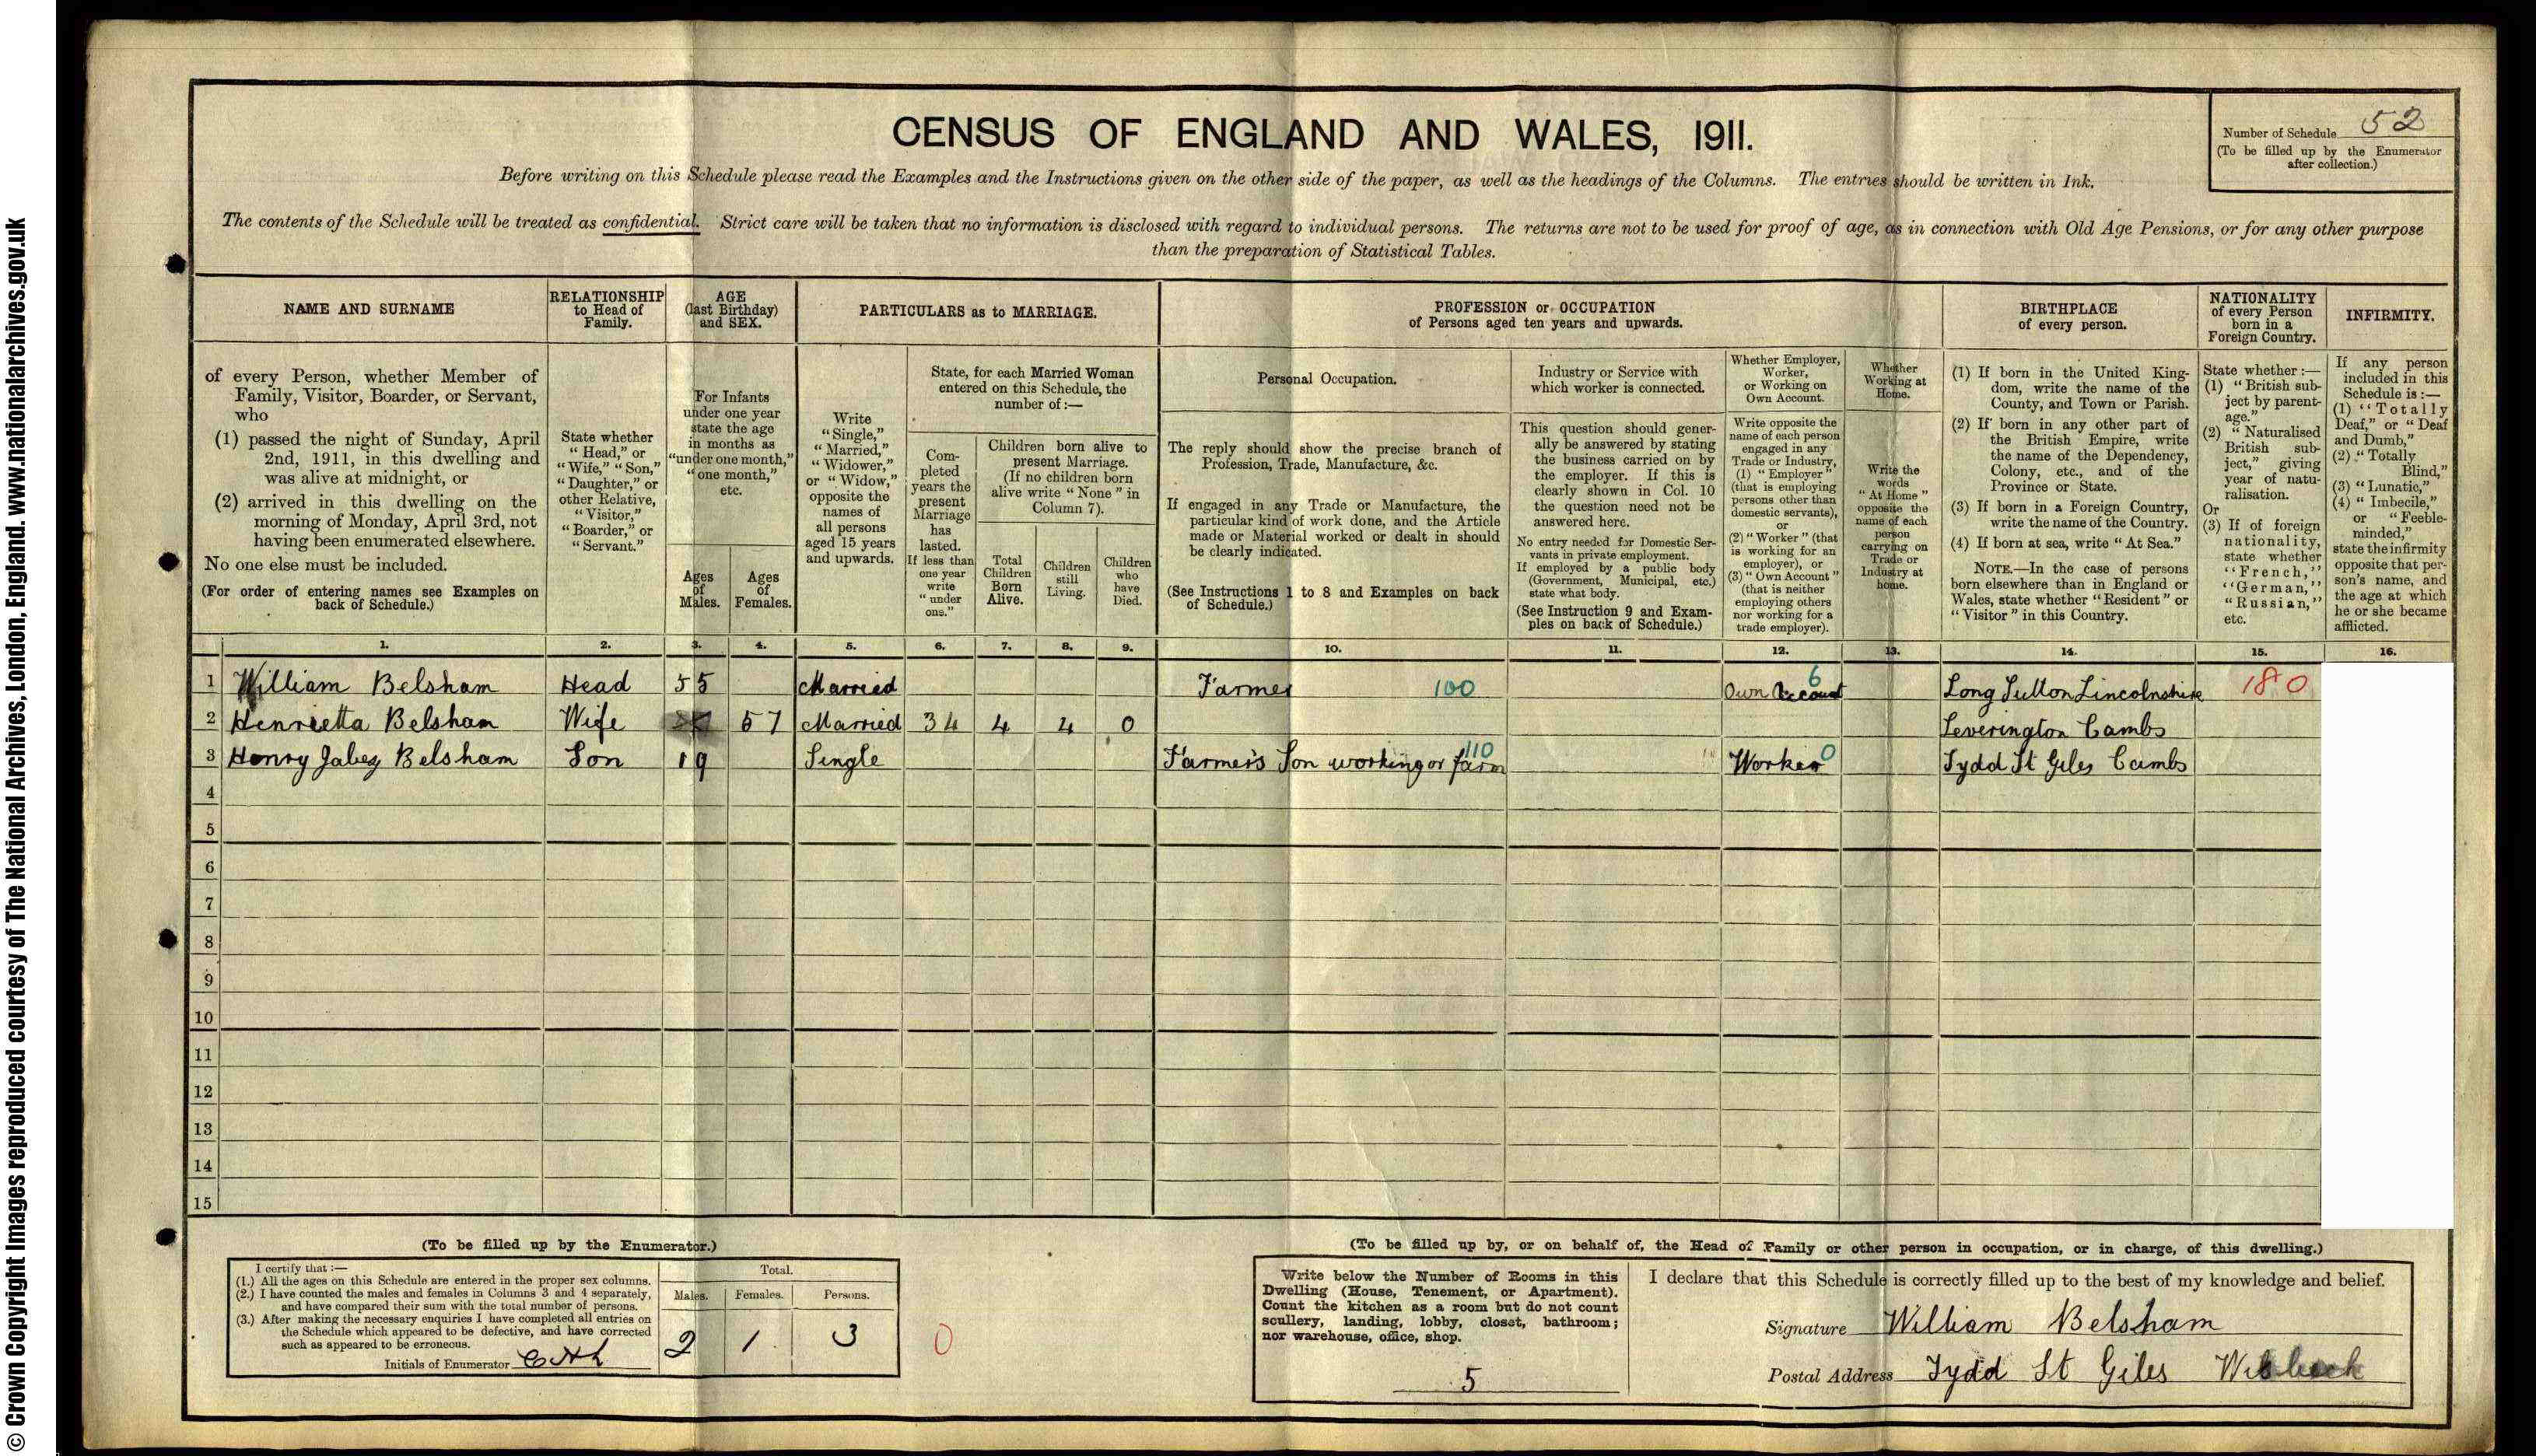 © Crown Copyright Images reproduced courtesy of The National Archives, London, England. www.nationalarchives.gov.uk
CENSUS OF ENGLAND AND WALES, 1911.
Number of Schedule 52
(To be filled up by the Enumerator
after collection.)
Before writing on this Schedule please read the Examples and the Instructions given on the other side of the paper, as well as the headings of the Columns. The entries should be written in Ink.
The contents of the Schedule will be treated as confidential. Strict care will be taken that no information is disclosed with regard to individual persons. The returns are not to be used for proof of age, as in connection with Old Age Pensions, or for any other purpose
than the preparation of Statistical Tables.
NAME AND SURNAME
of every Person, whether Member of
Family, Visitor, Boarder, or Servant,
who
(1) passed the night of Sunday, April
2nd, 1911, in this dwelling and
was alive at midnight, or
(2) arrived in this dwelling on the
morning of Monday, April 3rd, not
having been enumerated elsewhere.
No one else must be included.
(For order of entering names see Examples on
back of Schedule.)
RELATIONSHIP
to Head of
Family.
State whether
"Head," or
"Wife," "Son,"
"Daughter," or
other Relative,
"Visitor,"
"Boarder," or
"Servant."
AGE
(last Birthday)
and SEX.
For Infants
under one year
state the age
in months as
"under one month,"
"one month,"
etc.
Ages
of
Males.
Ages
of
Females.
PARTICULARS as to MARRIAGE.
Write
"Single,"
"Married,"
"Widower,"
or "Widow,"
opposite the
names of
all persons
aged 15 years
and upwards.
State, for each Married Woman
entered on this Schedule, the
number of:—
Com-
pleted
years the
present
Marriage
has
lasted.
If less than
one year
write
"under
one."
Children born alive to
present Marriage.
(If no children born
alive write "None" in
Column 7).
Total
Children
Born
Alive.
Children
still
Living.
Children
who
have
Died.
PROFESSION or OCCUPATION
of Persons aged ten years and upwards.
Personal Occupation.
The reply should show the precise branch of
Profession, Trade, Manufacture, &c.
If engaged in any Trade or Manufacture, the
particular kind of work done, and the Article
made or Material worked or dealt in should
be clearly indicated.
(See Instructions 1 to 8 and Examples on back
of Schedule.)
Industry or Service with
which worker is connected.
This question should gener-
ally be answered by stating
the business carried on by
the employer. If this is
clearly shown in Col. 10
the question need not be
answered here.
No entry needed for Domestic Ser-
vants in private employment.
If employed by a public body
(Government, Municipal, etc.)
state what body.
(See Instruction 9 and Exam-
ples on back of Schedule.)
Whether Employer,
Worker,
or Working on
Own Account.
Write opposite the
name of each person
engaged in any
Trade or Industry,
(1) "Employer"
(that is employing
persons other than
domestic servants),
or
(2) "Worker" (that
is working for an
employer), or
(3) "Own Account"
(that is neither
employing others
nor working for a
trade employer).
Whether
Working at
Home.
Write the
words
"At Home"
opposite the
name of each
person
carrying on
Trade or
Industry at
home.
BIRTHPLACE
of every person.
(1) If born in the United King-
dom, write the name of the
County, and Town or Parish.
(2) If born in any other part of
the British Empire, write
the name of the Dependency,
Colony, etc., and of the
Province or State.
(3) If born in a Foreign Country,
write the name of the Country.
(4) If born at sea, write "At Sea."
NOTE.—In the case of persons
born elsewhere than in England or
Wales, state whether "Resident" or
"Visitor" in this Country.
NATIONALITY
of every Person
born in a
Foreign Country.
State whether:—
(1) "British sub-
ject by parent-
age."
(2) "Naturalised
British sub-
ject," giving
year of natu-
ralisation.
Or
(3) If of foreign
nationality,
state whether
"French,"
"German,"
"Russian,"
etc.
INFIRMITY.
If any person
included in this
Schedule is:—
(1) "Totally
Deaf," or "Deaf
and Dumb,"
(2) "Totally
Blind,"
(3) "Lunatic,"
(4) "Imbecile,"
or "Feeble-
minded,"
state the infirmity
opposite that per-
son's name, and
the age at which
he or she became
afflicted.
1. 2. 3. 4. 5. 6. 7. 8. 9. 10. 11. 12. 13. 14. 15. 16.
1 William Belsham Head 55 Married Farmer 100 Own Account 6 Long Sutton Lincolnshire 180
2 Henrietta Belsham Wife 57 Married 34 4 4 0 Leverington Cambs
3 Henry Jabez Belsham Son 19 Single Farmer's Son working on farm 110 Worker 0 Tydd St Giles Cambs
4
5
6
7
8
9
10
11
12
13
14
15
(To be filled up by the Enumerator.)
I certify that:—
(1.) All the ages on this Schedule are entered in the proper sex columns.
(2.) I have counted the males and females in Columns 3 and 4 separately,
and have compared their sum with the total number of persons.
(3.) After making the necessary enquiries I have completed all entries on
the Schedule which appeared to be defective, and have corrected
such as appeared to be erroneous.
Initials of Enumerator
Total.
Males. Females. Persons.
2 1 3
0
(To be filled up by, or on behalf of, the Head of Family or other person in occupation, or in charge, of this dwelling.)
Write below the Number of Rooms in this
Dwelling (House, Tenement, or Apartment).
Count the kitchen as a room but do not count
scullery, landing, lobby, closet, bathroom;
nor warehouse, office, shop.
5
I declare that this Schedule is correctly filled up to the best of my knowledge and belief.
Signature William Belsham
Postal Address Tydd St Giles Wisbech